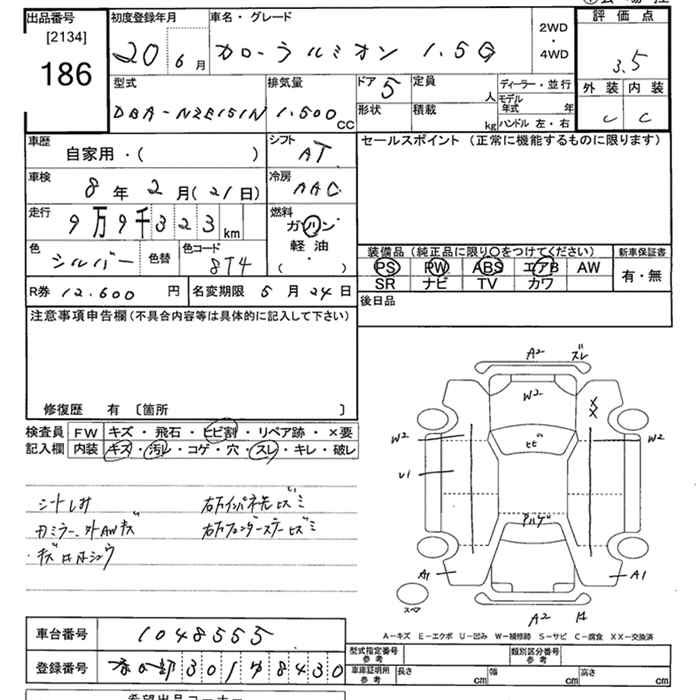 出品番号 初度登録年月 車名・グレード 2WD・4WD 評価点
[2134] 186
20 6月 カローラルミオン 1.5G 3.5
型式 排気量 ドア 5 定員 人 ディーラー・並行 外装 内装
DBA-NZE151N 1.500cc 形状 積載 kg モデル年式 年 ハンドル 左・右 C C
車歴 自家用・( ) シフト AT セールスポイント (正常に機能するものに限ります)
車検 8年2月(21日) 冷房 AAC
走行 9万9千323km 燃料 ガソリン・軽油・( )
色 シルバー 色替 色コード 8T4
装備品 (純正品に限り○をつけてください) 新車保証書
PS PW ABS エアB AW 有・無
SR ナビ TV カワ
R券 12.600円 名変期限 5月24日 後日品
注意事項申告欄(不具合内容等は具体的に記入して下さい)
修復歴 有 〔箇所 〕
検査員記入欄 FW キズ・飛石・ヒビ割・リペア跡・×要
内装 キズ・汚レ・コゲ・穴・スレ・キレ・破レ
カミラー、外AWキズ
A2 ズレ
W2
X
X
W2 ヒビ W2
U1
アハゲ
A1 A1
スペア
A2
A-キズ E-エクボ U-凹み W-補修跡 S-サビ C-腐食 XX-交換済
車台番号 1048555
型式指定番号 参考 類別区分番号 参考
登録番号 301 8430
車庫証明用 参考 長さ cm 幅 cm 高さ cm
希望出品コーナー